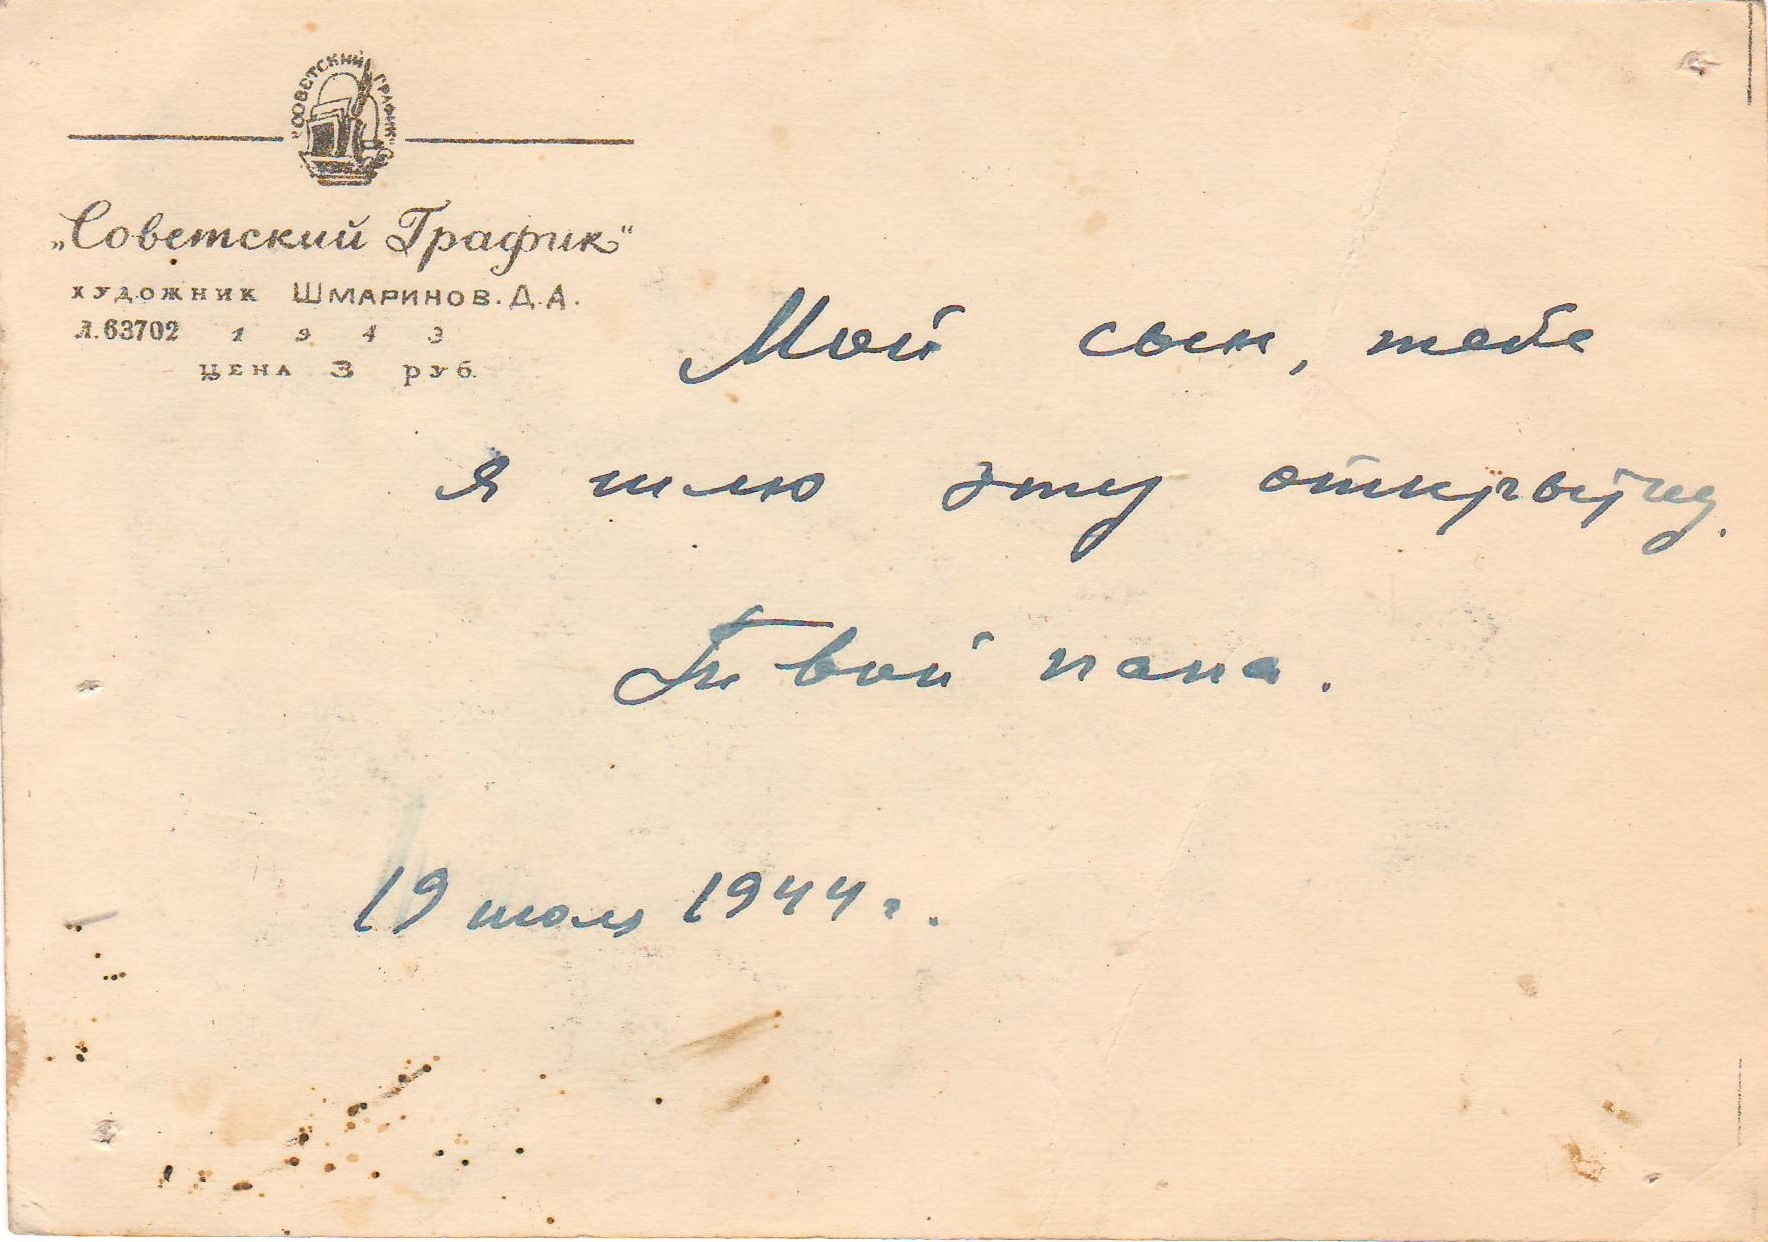 "СОВЕТСКИЙ ГРАФИК"
„Советский График“
ХУДОЖНИК ШМАРИНОВ. Д. А.
Л.63702 1 9 4 3
ЦЕНА 3 руб.
Мой сын, тебе
я шлю эту открытку.
Твой папа.
19 июля 1944 г.